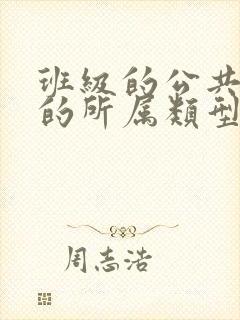 班級的公共
的所属類型
周志浩